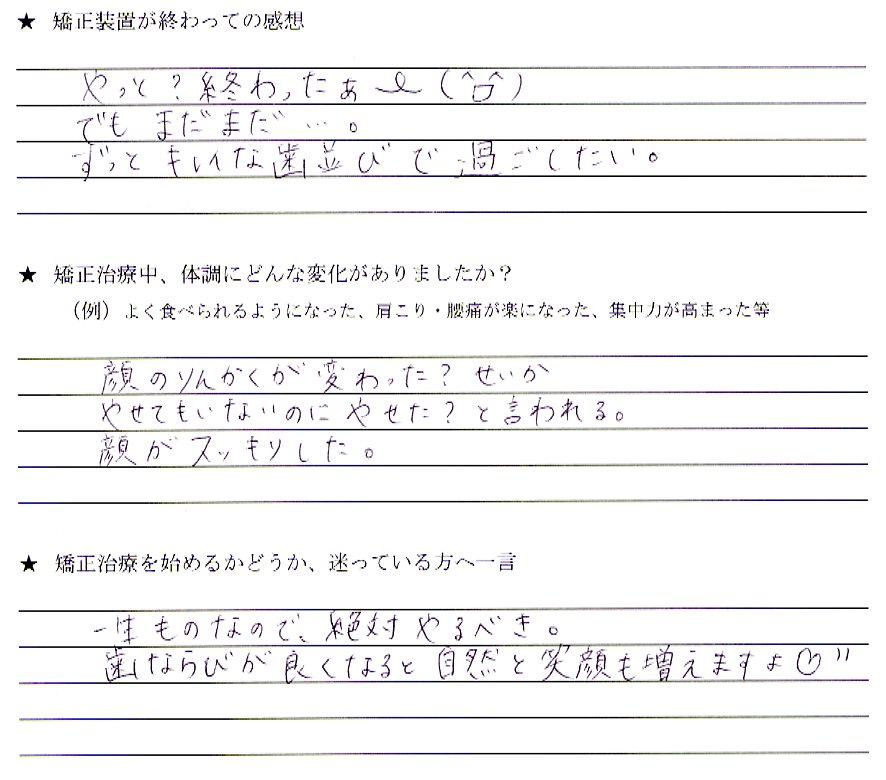 ★ 矯正装置が終わっての感想
やっと？終わったぁ〜(^台^)
でも まだまだ…。
ずっと キレイな歯並びで過ごしたい。
★ 矯正治療中、体調にどんな変化がありましたか？
（例）よく食べられるようになった、肩こり・腰痛が楽になった、集中力が高まった等
顔のりんかくが変わった？せいか
やせてもいないのに やせた？と言われる。
顔がスッキリした。
★ 矯正治療を始めるかどうか、迷っている方へ一言
一生ものなので、絶対やるべき。
歯ならびが良くなると自然と笑顔も増えますよ♡"